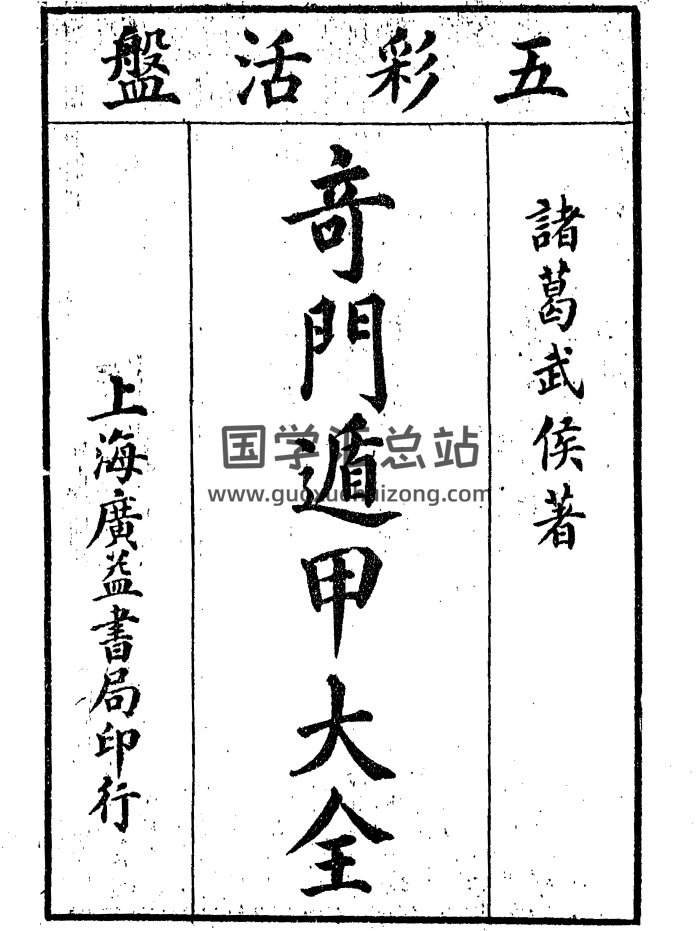 五彩活盤
諸葛武侯著
竒門遁甲大全
上海廣益書局印行
国学汇总站
www.guoxuehuizong.com